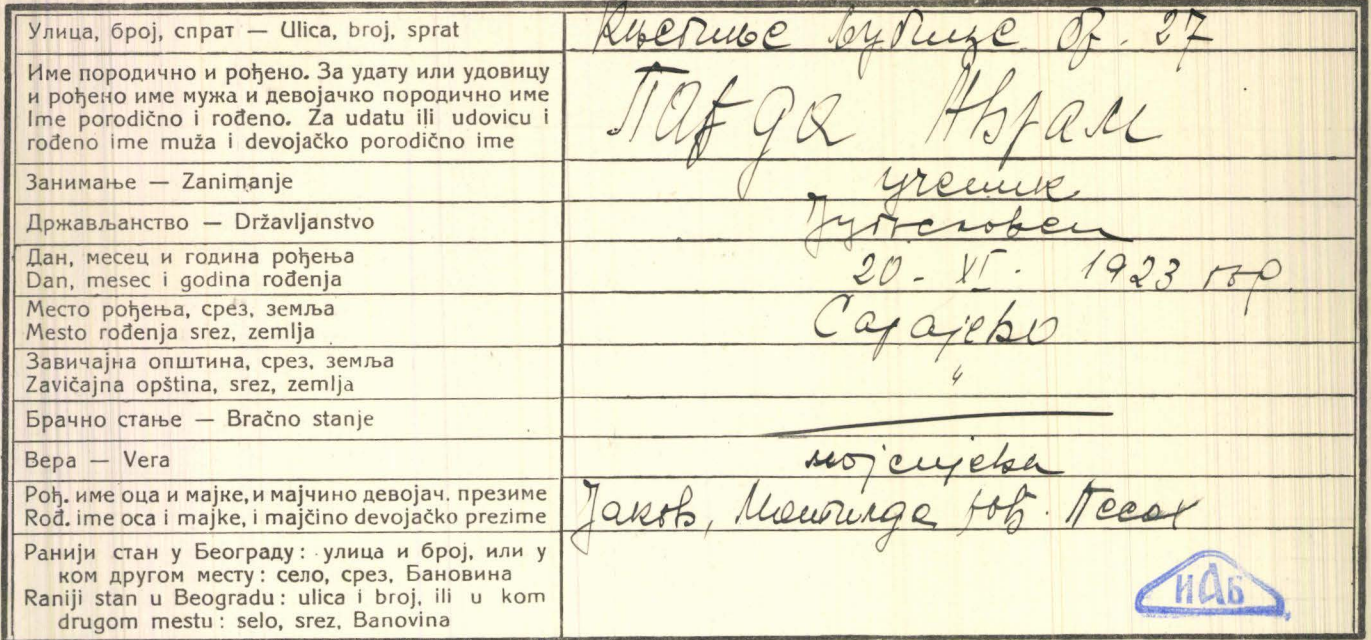 Улица, број, спрат — Ulica, broj, sprat
Књегиње Љубице бр. 27
Име породично и рођено. За удату или удовицу
и рођено име мужа и девојачко породично име
Ime porodično i rođeno. Za udatu ili udovicu i
rođeno ime muža i devojačko porodično ime
Пардо Аврам
Занимање — Zanimanje
ученик
Држављанство — Državljanstvo
Југословен
Дан, месец и година рођења
Dan, mesec i godina rođenja
20 - XI - 1923 год
Место рођења, срез, земља
Mesto rođenja srez, zemlja
Сарајево
Завичајна општина, срез, земља
Zavičajna opština, srez, zemlja
"
Брачно стање — Bračno stanje
Вера — Vera
мојсијева
Рођ. име оца и мајке, и мајчино девојач. презиме
Rođ. ime oca i majke, i majčino devojačko prezime
Јаков, Матилда рођ. Песах
Ранији стан у Београду: улица и број, или у
ком другом месту: село, срез, Бановина
Raniji stan u Beogradu: ulica i broj, ili u kom
drugom mestu: selo, srez, Banovina
ИАБ